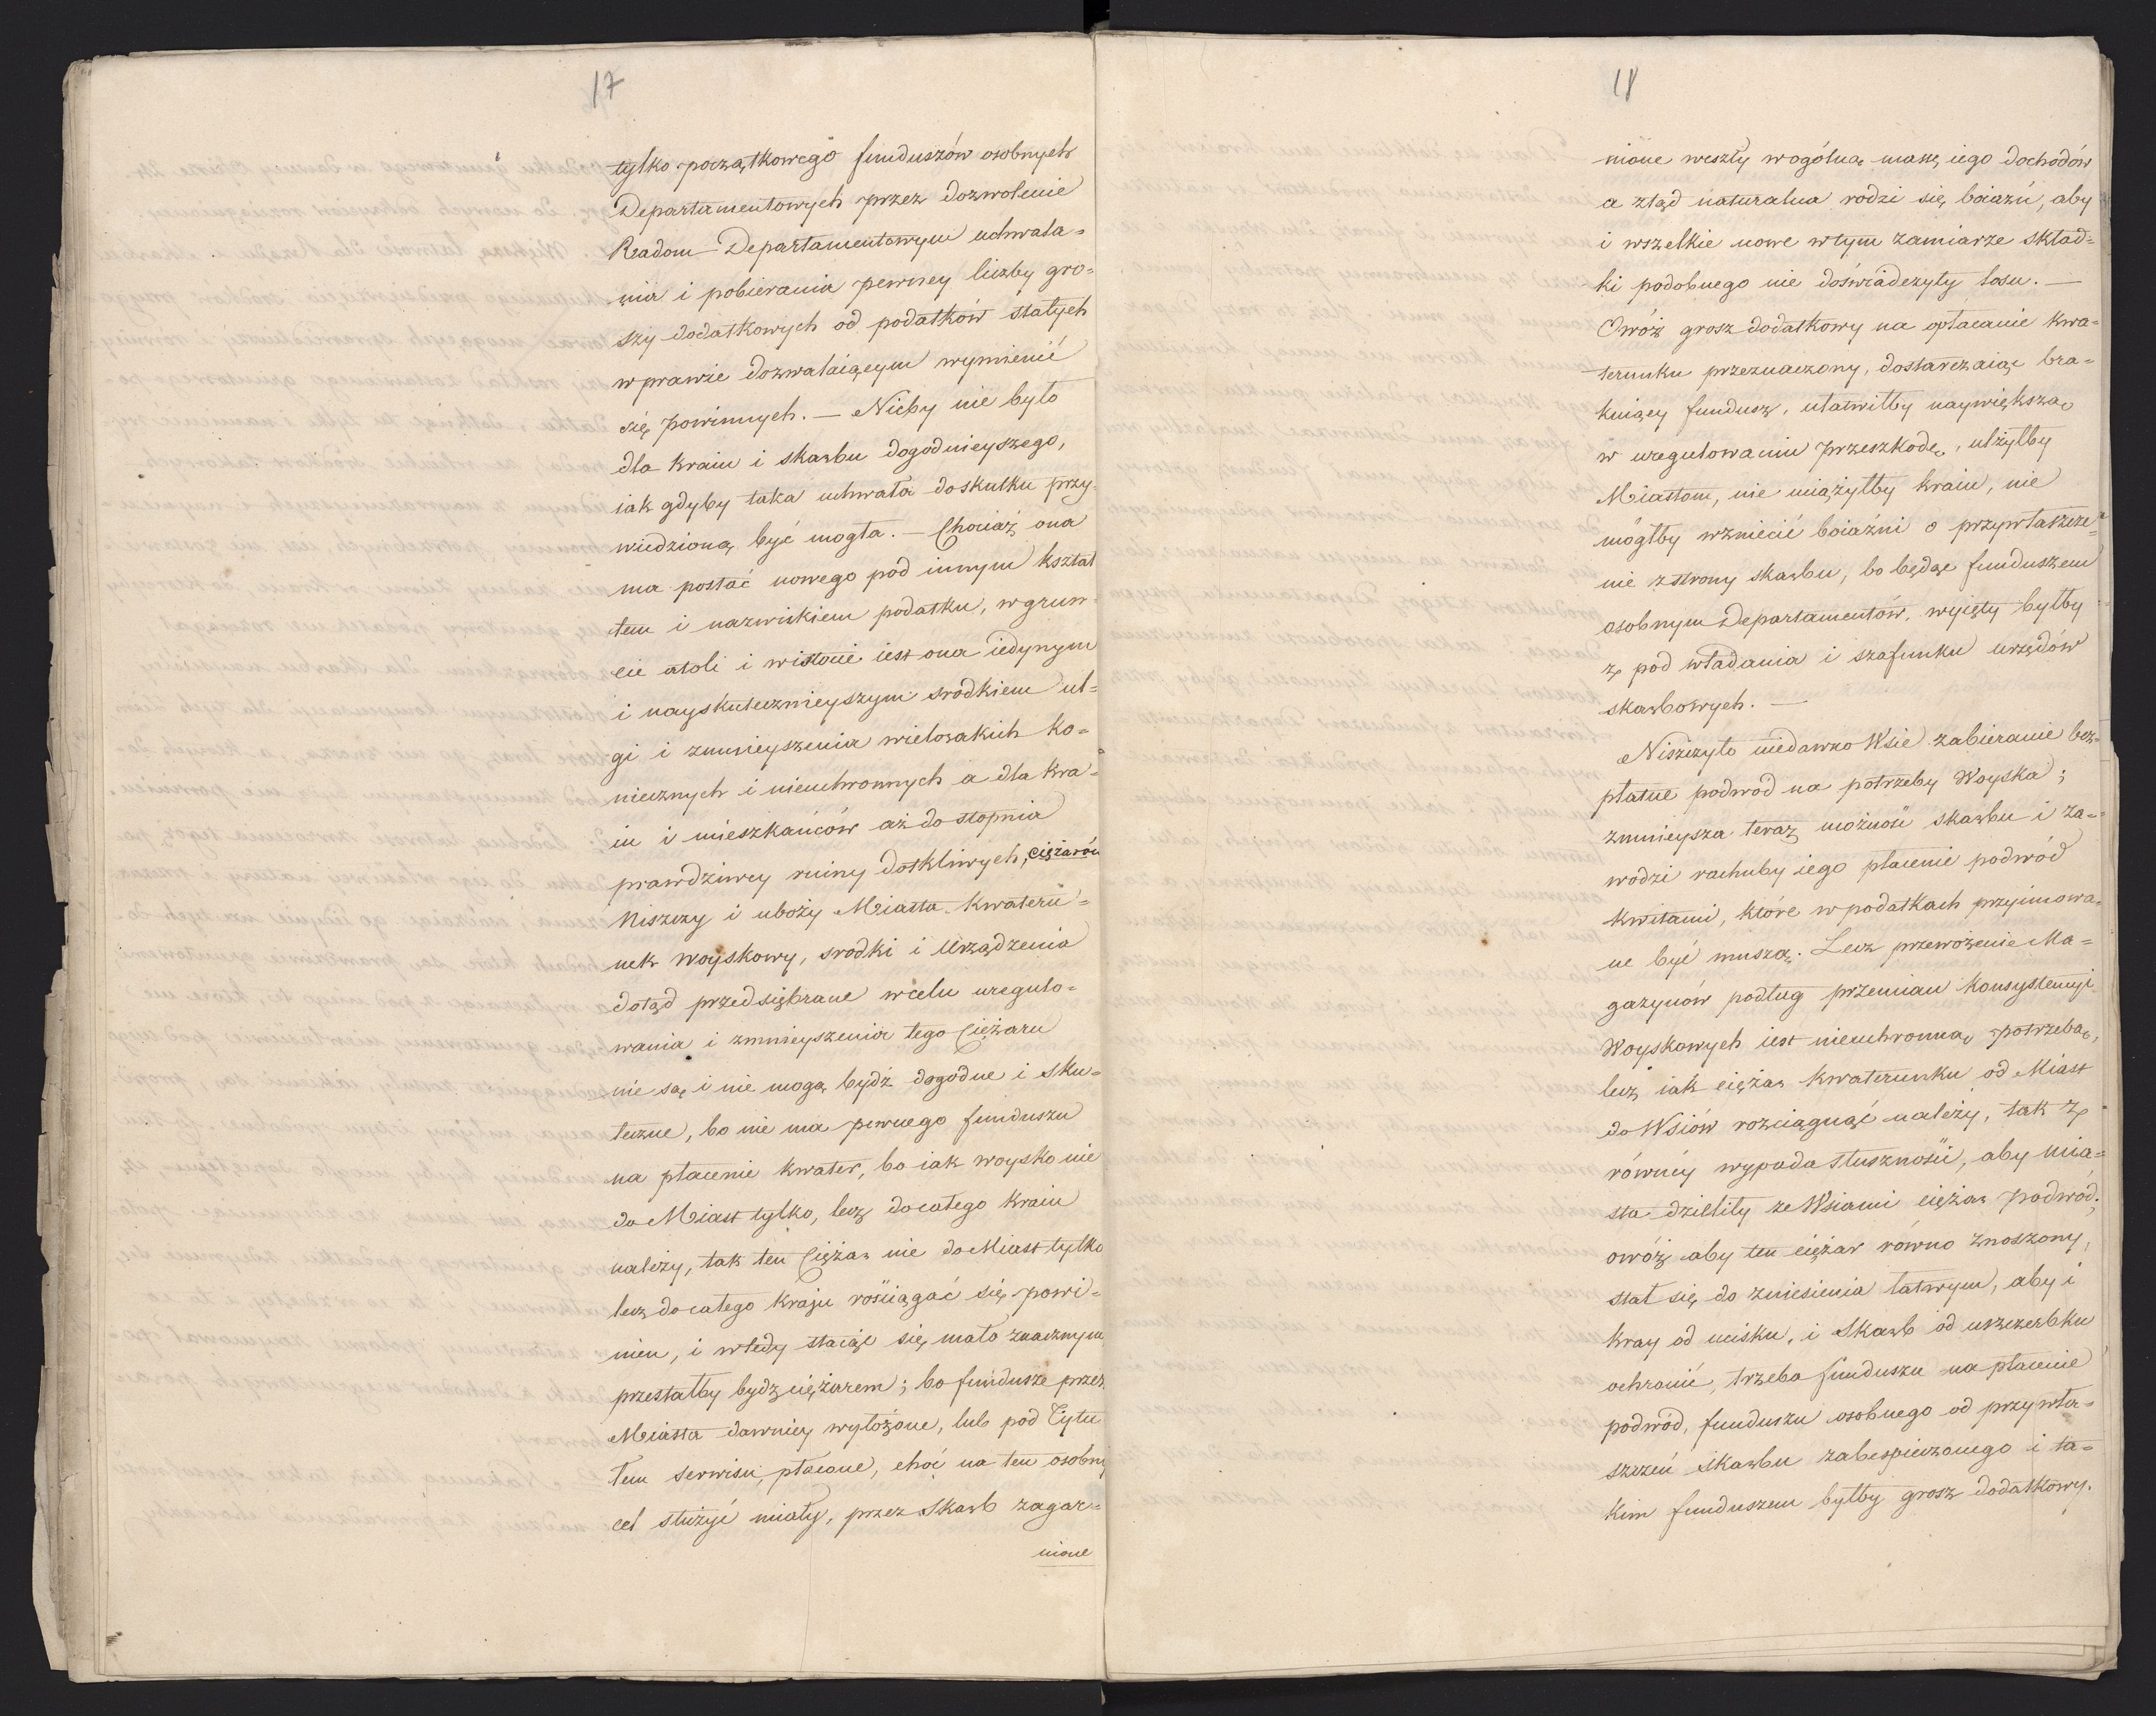 17
tylko początkowego funduszów osobnych
Departamentowych przez dozwolenie
Radom Departamentowym uchwala=
nia i pobierania pewney liczby gro=
szy dodatkowych od podatków stałych
w prawie dozwalaiącym wymienić
się powinnych. — Nicby nie było
dla kraiu i skarbu dogodnieyszego,
iak gdyby taka uchwała do skutku przy=
wiedzioną być mogła. — Chociaż ona
ma postać nowego pod innym kształ
tem i nazwiskiem podatku, w grun=
cie atoli i wistocie iest ona iedynym
i nayskutecznieyszym srodkiem ul=
gi i zmnieyszenia wielorakich ko=
niecznych i nieuchronnych a dla kra=
iu i mieszkańców aż do stopnia
prawdziwey ruiny dotkliwych, ciężarów
Niszczy i uboży Miasta kwateru=
nek woyskowy, srodki i Urządzenia
dotąd przedsiębrane w celu uregulo=
wania i zmnieyszenia tego Ciężaru
nie są i nie mogą bydź dogodne i sku=
teczne, bo nie ma pewnego funduszu
na płacenie kwater, bo iak woysko nie
do Miast tylko, lecz do całego kraiu
należy, tak ten Ciężar nie do Miast tylko
lecz do całego kraju rościągać się powi=
nien, i wtedy staiąc się mało znacznym
przestałby bydź ciężarem; bo fundusze przez
Miasta dawniey wyłożone, lub pod Tytu
łem serwisu płacone, choć na ten osobny
cel służyć miały, przez Skarb zagar=
nione
18
nione weszły w ogólną massę iego dochodów
a ztąd naturalna rodzi się boiaźń, aby
i wszelkie nowe w tym zamiarze skład=
ki podobnego nie doświadczyły losu. —
Owóż grosz dodatkowy na opłacanie kwa=
terunku przeznaczony, dostarczaiąc bra=
kuiący fundusz, ułatwiłby naywiększą
w uregulowaniu przeszkodę, ulżyłby
Miastom, nie uciążyłby kraiu, nie
mógłby wzniecić boiaźni o przywłaszcze=
nie z strony skarbu, bo będąc funduszem
osobnym Departamentów, wyięty byłby
z pod władania i szafunku urzędów
skarbowych. —
Niszczyło niedawno Wsie zabieranie bez=
płatne podwod na potrzeby Woyska;
zmnieysza teraz możność skarbu i za=
wodzi rachuby iego płacenie podwód
kwitami, które w podatkach przyimowa=
ne być muszą. Lecz przewożenie Ma=
gazynów podług przemian konsystencyi
Woyskowych iest nieuchronną potrzebą,
lecz iak ciężar kwaterunku od Miast
do Wsiów rozciągnąć należy, tak z
równéy wypada słuszności, aby mia=
sta dzieliły ze Wsiami ciężar podwód;
owóż aby ten ciężar równo znoszony,
stał się do zniesienia łatwym, aby i
kray od ucisku, i Skarb od uszczerbku
ochronić, trzeba funduszu na płacenie
podwód, funduszu osobnego od przywła=
szczeń skarbu zabespieczonego i ta=
kim funduszem byłby grosz dodatkowy.